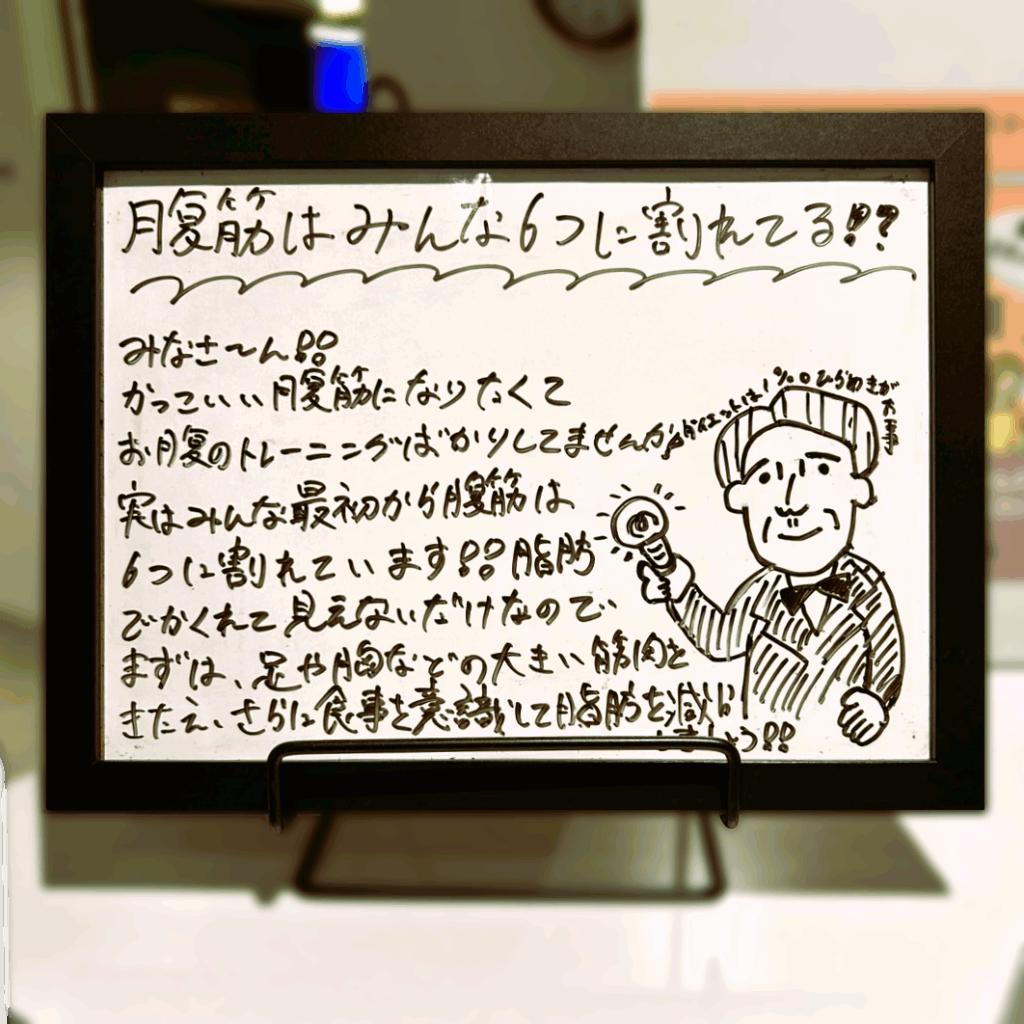 腹筋はみんな6つに割れてる!??
みなさ〜ん!!
かっこいい腹筋になりたくて
お腹のトレーニングばかりしてませんか?
実はみんな最初から腹筋は
6つに割れています!!脂肪
でかくれて見えないだけなので
まずは、足や胸などの大きい筋肉を
きたえ、さらに食事を意識して脂肪を減ら
しましょう!!
ダイエットは1%のひらめきが大事